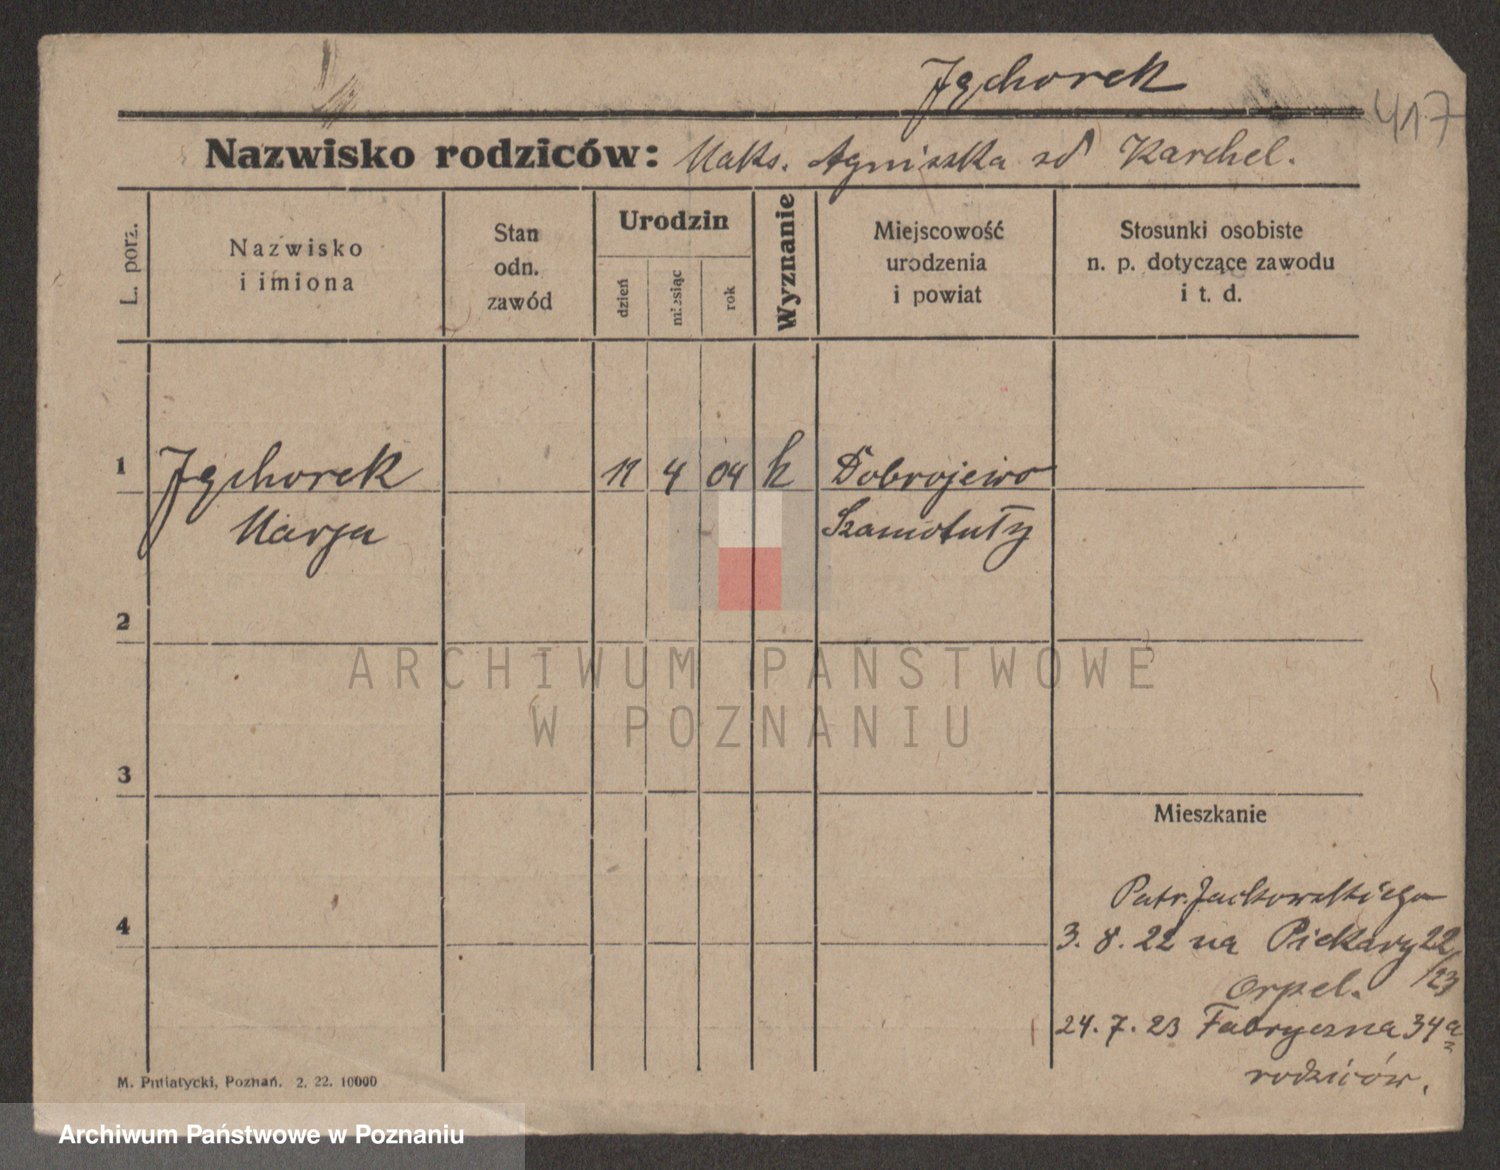 Jęchorek
417
Nazwisko rodziców: Maks. Agniszka zd Karchel.
L. porz.
Nazwisko
i imiona
Stan
odn.
zawód
Urodzin
dzień
miesiąc
rok
Wyznanie
Miejscowość
urodzenia
i powiat
Stosunki osobiste
n. p. dotyczące zawodu
i t. d.
1 Jęchorek 11 4 04 k Dobrojewo
Marja Szamotuły
2
ARCHIWUM PAŃSTWOWE
W POZNANIU
3
Mieszkanie
Patr. Jackowskiego
4 3. 8. 22 na Piekary 22/23
24. 7. 23 Fabryczna 34a
rodziców.
M. Putiatycki, Poznań. 2. 22. 10000
Archiwum Państwowe w Poznaniu